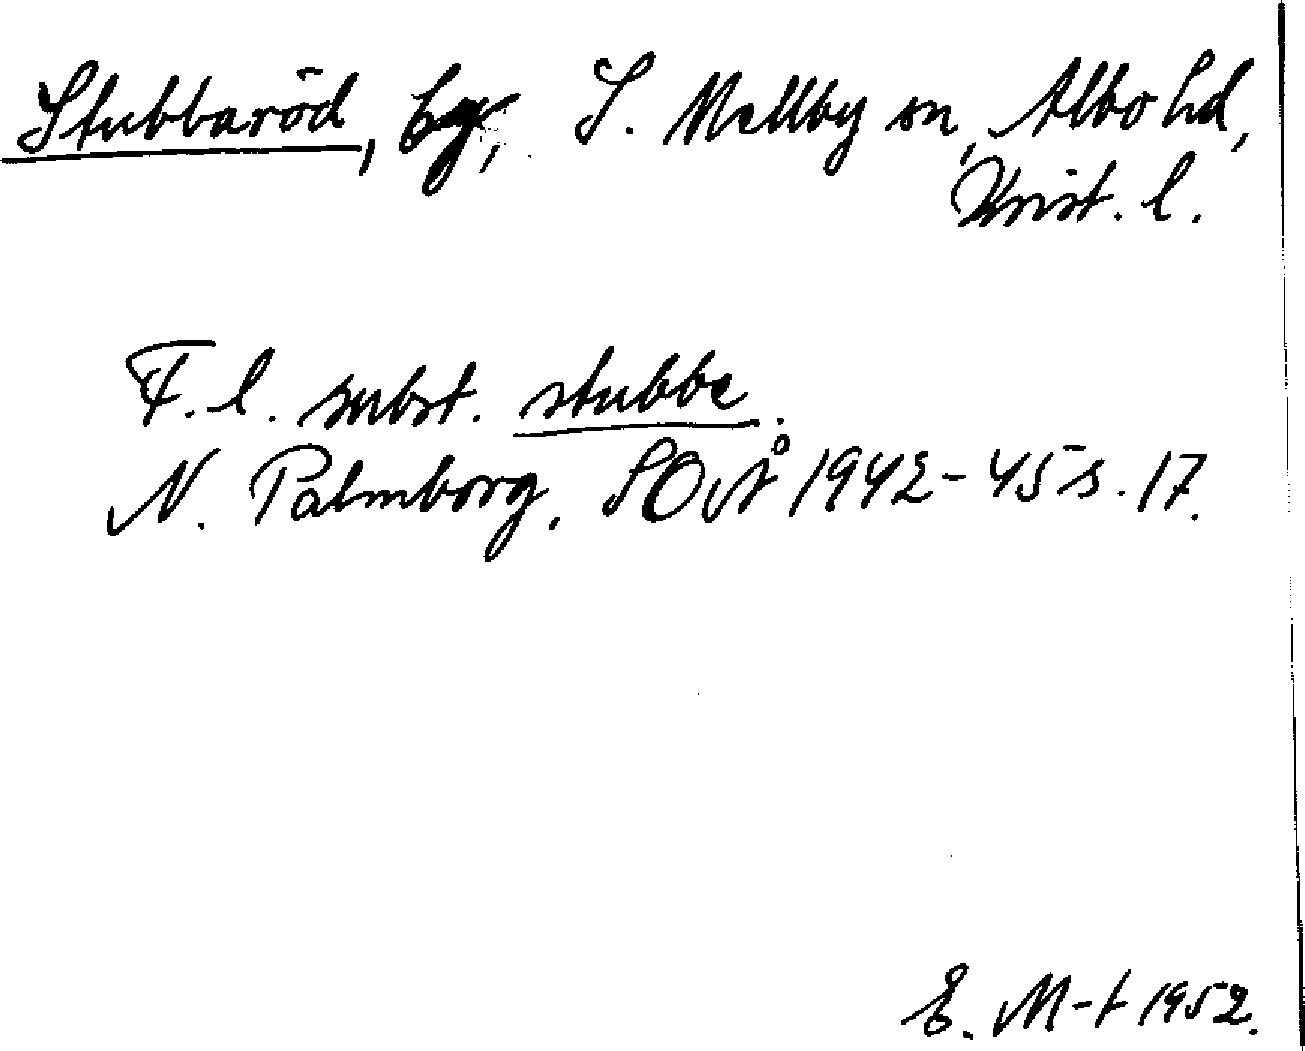 Stubbaröd, by, S. Mellby sn, Albo hd,
Krist. l.
F. l. subst. stubbe.
N. Palmborg, SOÅ 1942-45 s. 17.
E. M-t 1952.